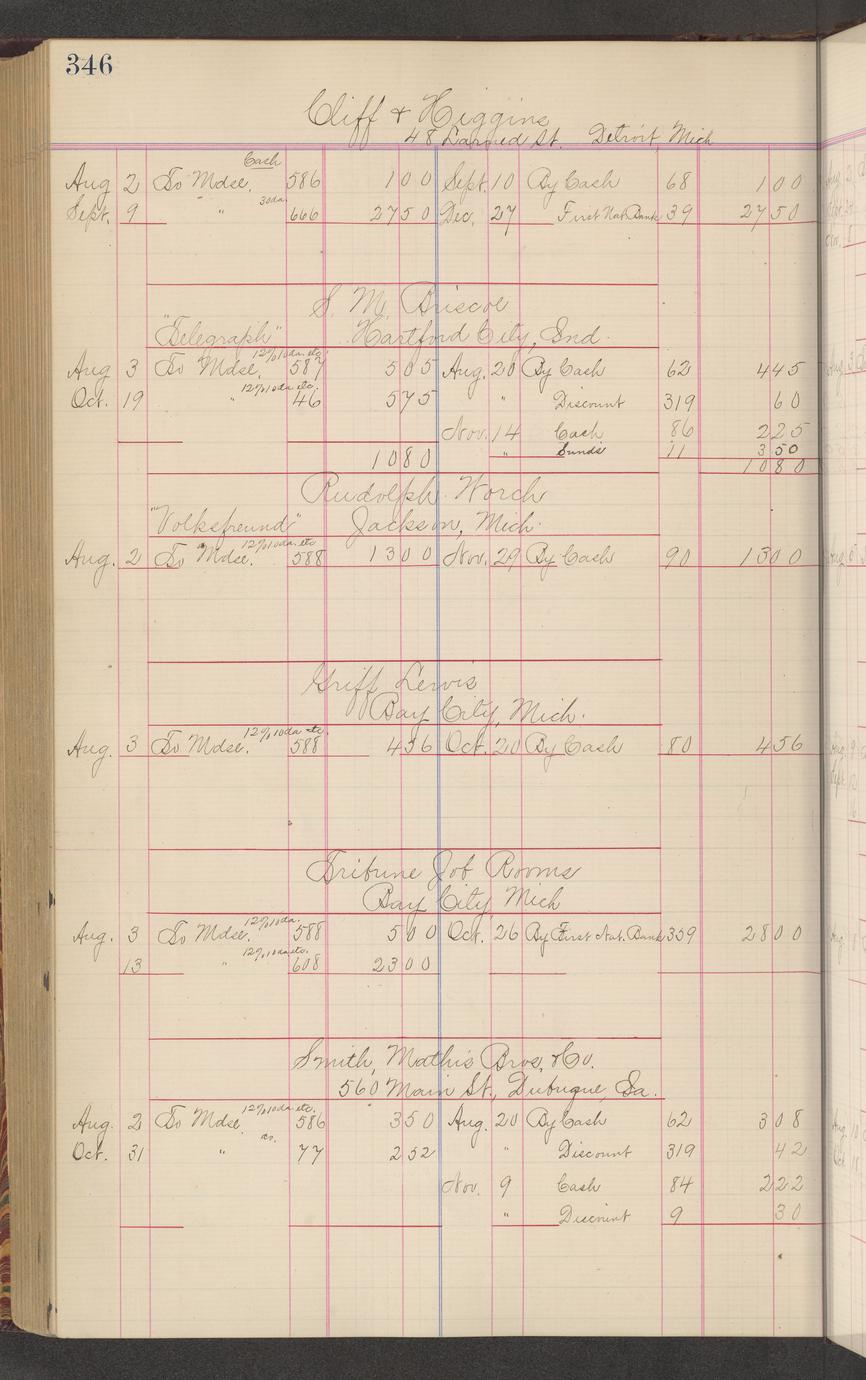 346
Cliff & Higgins
48 Larned St. Detroit Mich
Cash
Aug 2 To Mdse. 586 100 Sept. 10 By Cash 68 100
30da
Sept. 9 " 666 2750 Dec. 27 First Nat Bank 39 2750
S. M. Briscoe
"Telegraph" Hartford City, Ind.
12%10da etc.
Aug 3 To Mdse. 587 505 Aug. 20 By Cash 62 445
12%10da etc.
Oct. 19 " 46 575 " Discount 319 60
Nov. 14 Cash 86 225
" Sunds 11 350
1080 1080
Rudolph Worch
"Volksfreund" Jackson, Mich.
12%10da. etc
Aug. 2 To Mdse. 588 1300 Nov. 29 By Cash 90 1300
Griff Lewis
Bay City, Mich.
12%10da etc.
Aug. 3 To Mdse. 588 456 Oct. 20 By Cash 80 456
Tribune Job Rooms
Bay City Mich
12%10da.
Aug. 3 To Mdse. 588 500 Oct. 26 By First Nat. Bank 359 2800
12%10da etc.
13 " 608 2300
Smith, Mathis Bros, & Co.
560 Main St., Dubuque, Ia.
12%10da etc.
Aug. 2 To Mdse. 586 350 Aug. 20 By Cash 62 308
Oct. 31 " 77 252 " Discount 319 42
Nov. 9 Cash 84 222
" Discount 9 30